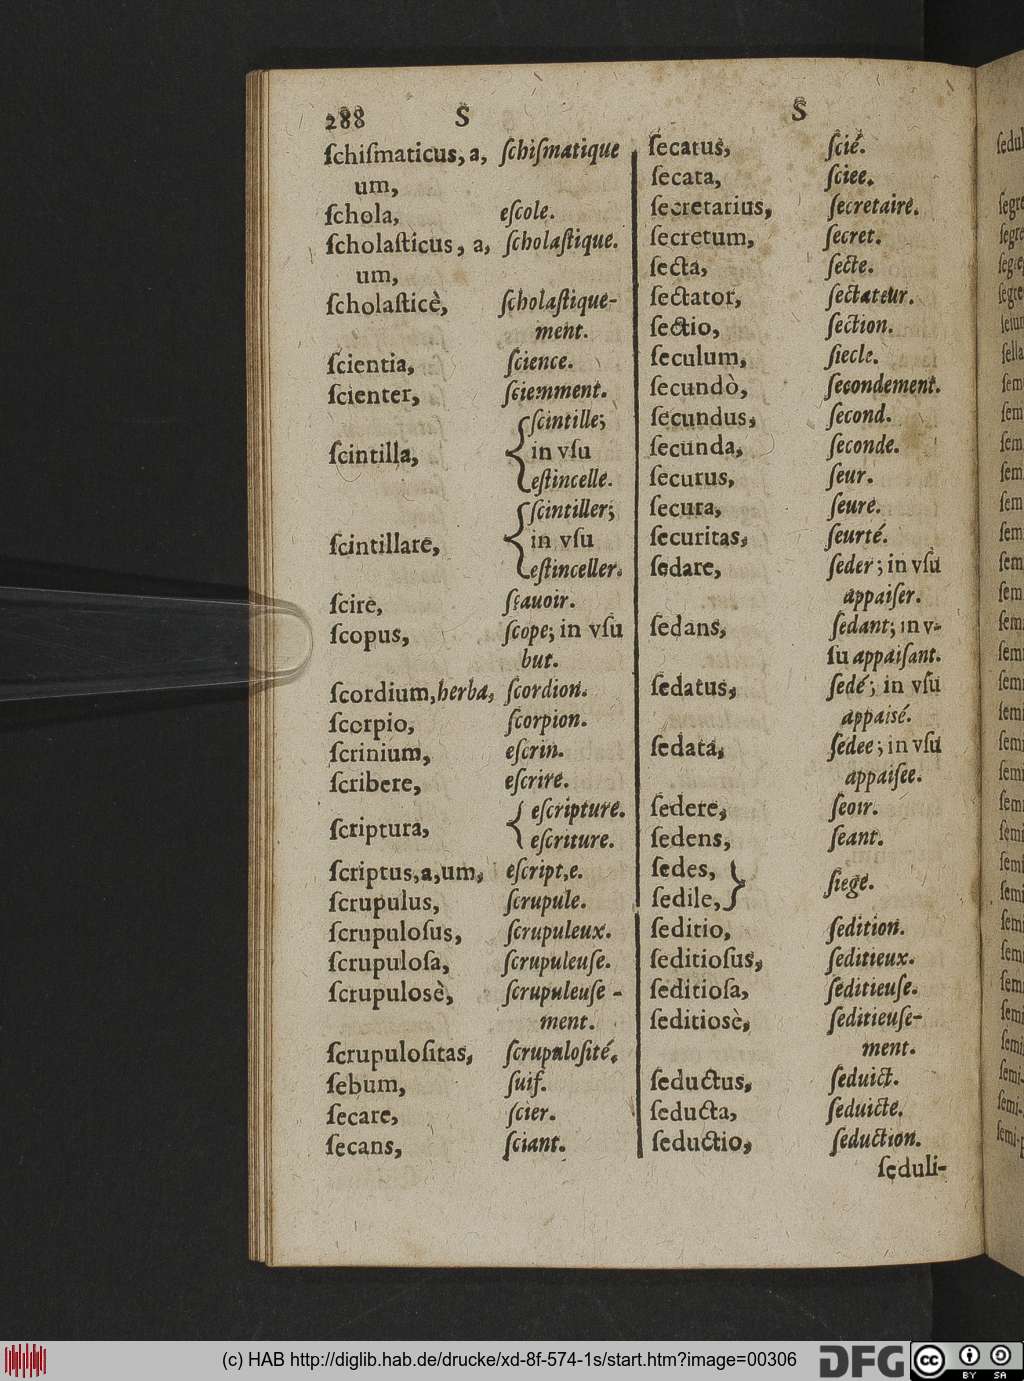 288 S S
ſchiſmaticus, a, ſchiſmatique
um,
ſchola, eſcole.
ſcholaſticus, a, ſcholaſtique.
um,
ſcholaſticè, ſcholaſtique-
ment.
ſcientia, ſcience.
ſcienter, ſciemment.
ſcintille;
ſcintilla, in vſu
eſtincelle.
ſcintiller;
ſcintillare, in vſu
eſtinceller.
ſcire, ſçauoir.
ſcopus, ſcope; in vſu
but.
ſcordium, herba, ſcordion.
ſcorpio, ſcorpion.
ſcrinium, eſcrin.
ſcribere, eſcrire.
ſcriptura, eſcripture.
eſcriture.
ſcriptus, a, um, eſcript, e.
ſcrupulus, ſcrupule.
ſcrupuloſus, ſcrupuleux.
ſcrupuloſa, ſcrupuleuſe.
ſcrupulosè, ſcrupuleuſe-
ment.
ſcrupuloſitas, ſcrupuloſité.
ſebum, ſuif.
ſecare, ſcier.
ſecans, ſciant.
ſecatus, ſcié.
ſecata, ſciee.
ſecretarius, ſecretaire.
ſecretum, ſecret.
ſecta, ſecte.
ſectator, ſectateur.
ſectio, ſection.
ſeculum, ſiecle.
ſecundò, ſecondement.
ſecundus, ſecond.
ſecunda, ſeconde.
ſecurus, ſeur.
ſecura, ſeure.
ſecuritas, ſeurté.
ſedare, ſeder; in vſu
appaiſer.
ſedans, ſedant; in v-
ſu appaiſant.
ſedatus, ſedé; in vſu
appaisé.
ſedata, ſedee; in vſu
appaiſee.
ſedere, ſeoir.
ſedens, ſeant.
ſedes,
ſedile, ſiege.
ſeditio, ſedition.
ſeditioſus, ſeditieux.
ſeditioſa, ſeditieuſe.
ſeditiosè, ſeditieuſe-
ment.
ſeductus, ſeduict.
ſeducta, ſeduicte.
ſeductio, ſeduction.
ſeduli-
(c) HAB http://diglib.hab.de/drucke/xd-8f-574-1s/start.htm?image=00306
DFG
cc BY SA